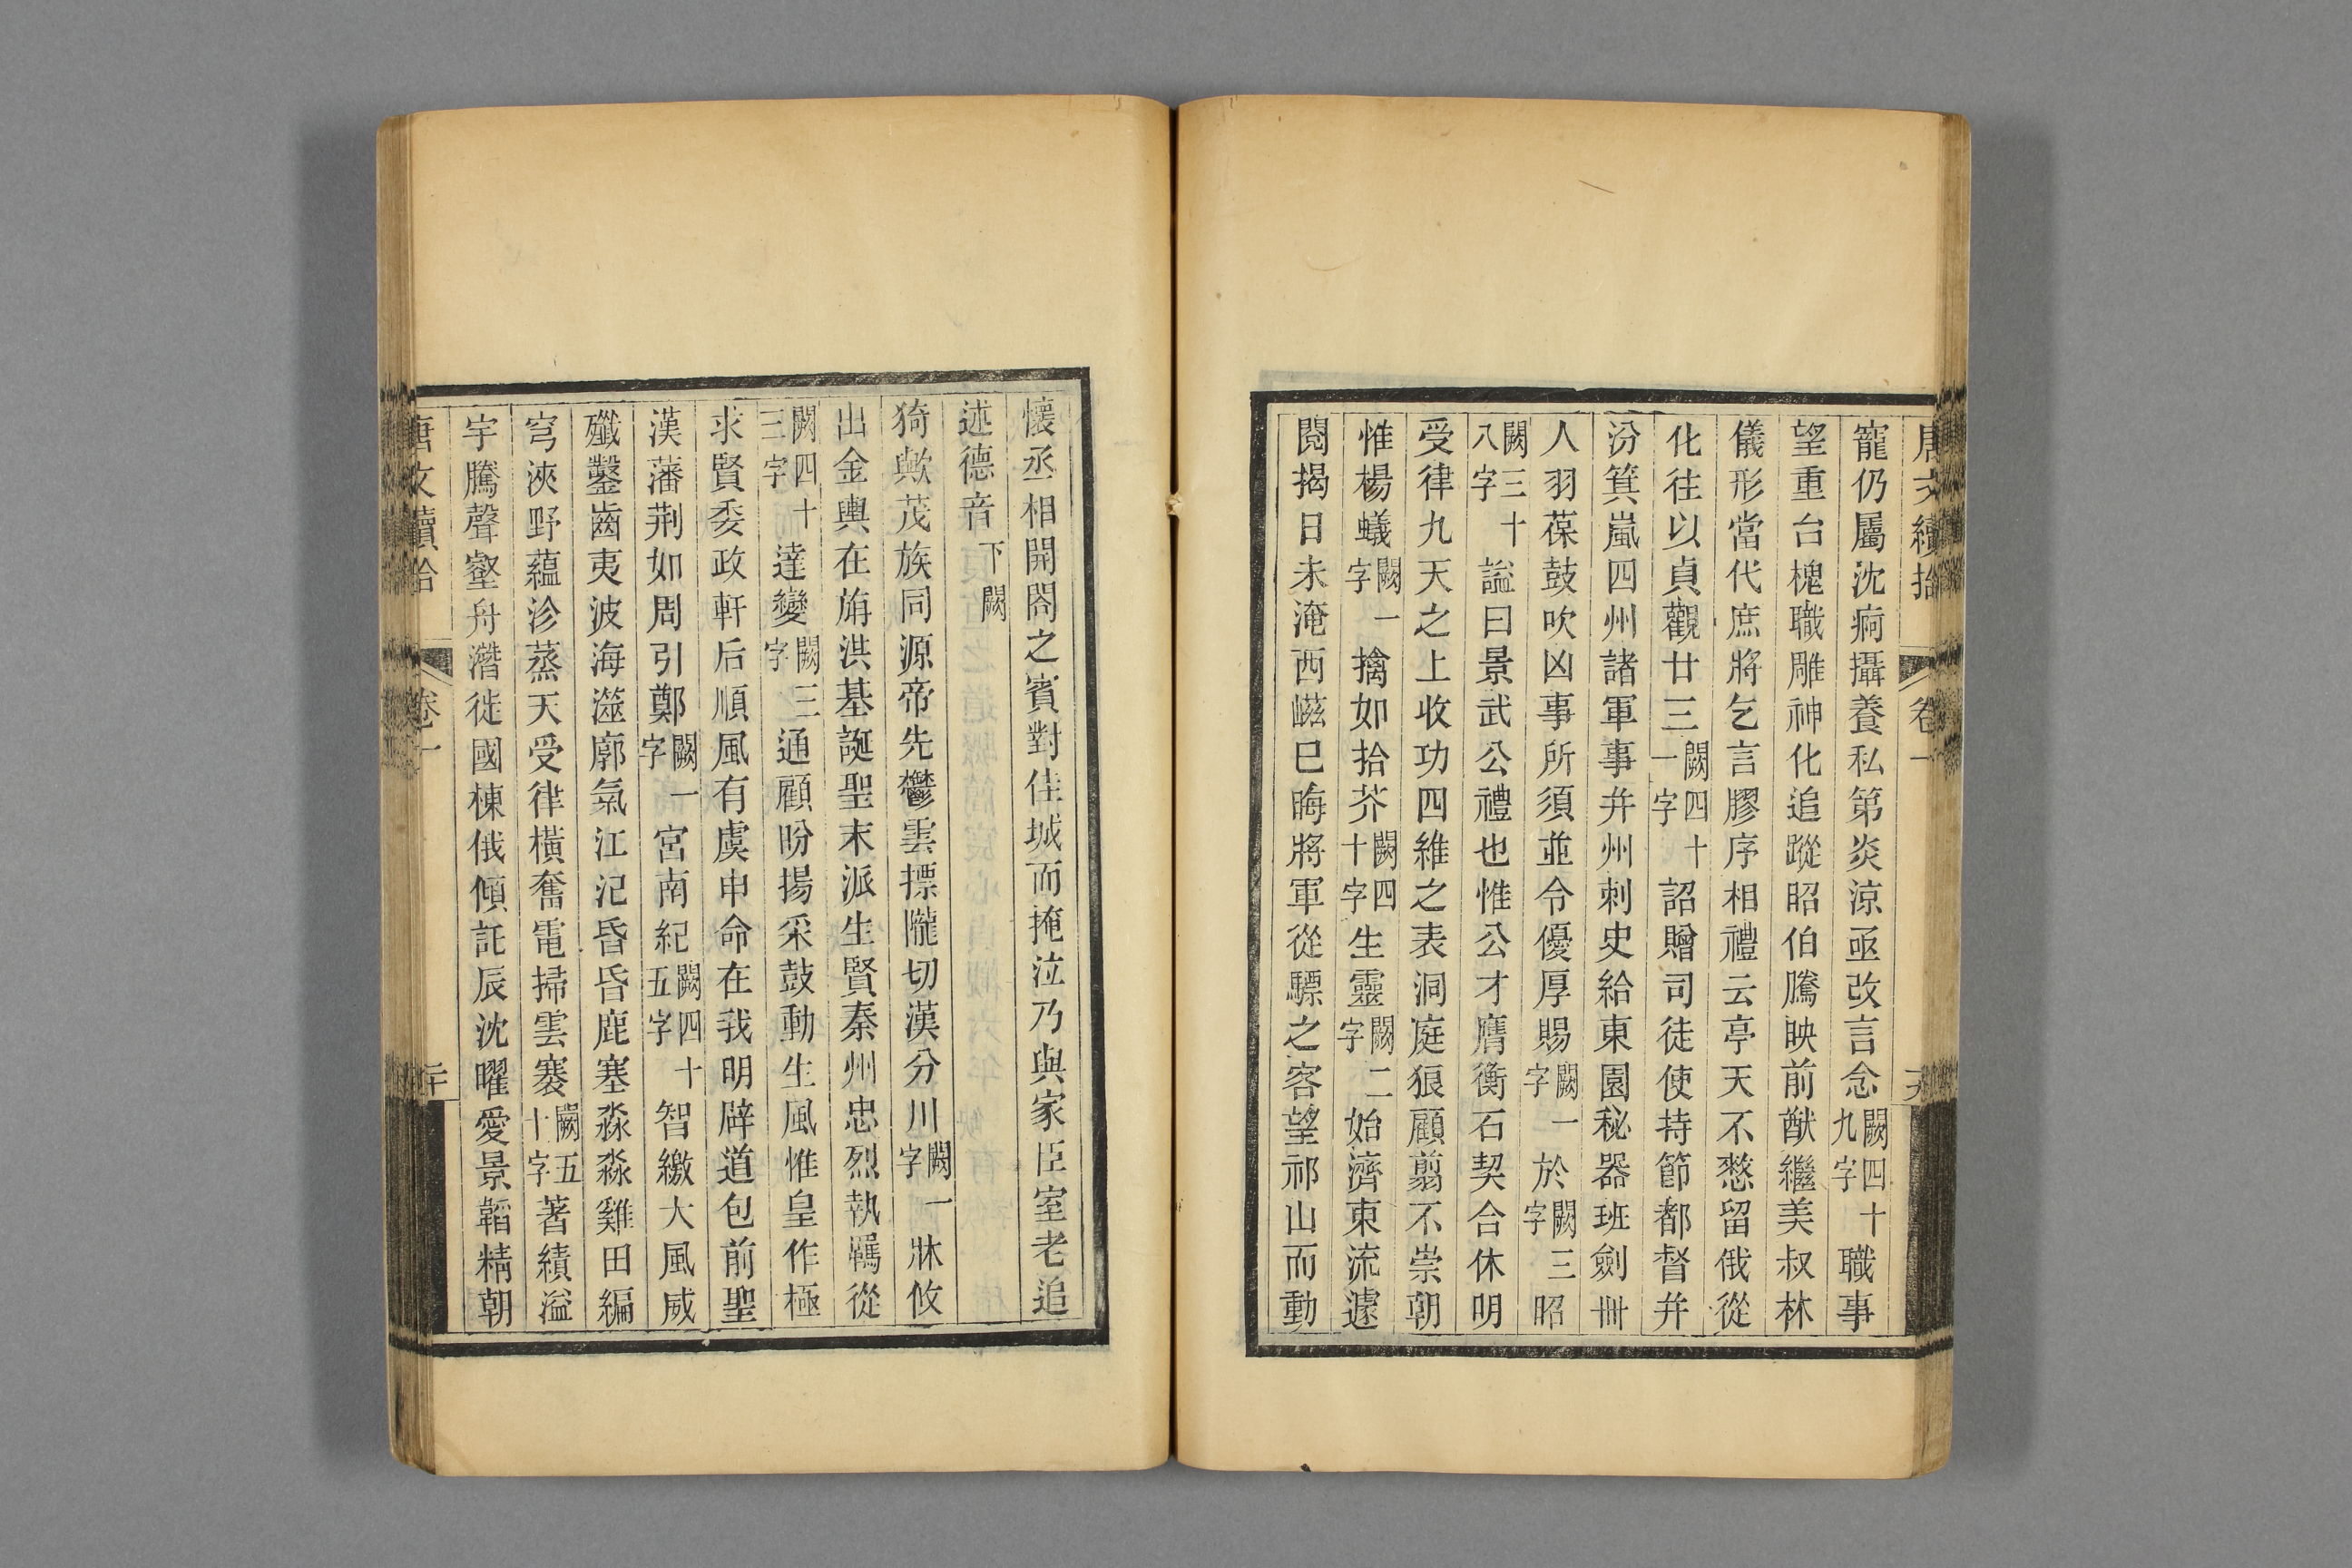 唐文續拾 卷一
寵仍屬沈痾攝養私第炎涼亟改言念闕四十九字職事
望重台槐職雕神化追蹤昭伯騰映前猷繼美叔林
儀形當代庶將乞言膠序相禮云亭天不憗留俄從
化往以貞觀廿三闕四十一字詔贈司徒使持節都督幷
汾箕嵐四州諸軍事幷州刺史給東園秘器班劍卌
人羽葆鼓吹凶事所須並令優厚賜闕一字於闕三字昭
闕三十八字諡曰景武公禮也惟公才膺衡石契合休明
受律九天之上收功四維之表洞庭狼顧翦不崇朝
惟楊蟻闕一字擒如拾芥闕四十字生靈闕二字始濟東流遽
閱揭日未淹西嶬巳晦將軍從驃之客望祁山而動
懷丞相開閤之賓對佳城而掩泣乃與家臣室老追
述德音下闕
猗歟茂族同源帝先鬱雲摽隴切漢分川闕一字牀攸
出金輿在旃洪基誕聖末派生賢秦州忠烈執羈從
闕四十三字達變闕三字通顧盼揚采鼓動生風惟皇作極
求賢委政軒后順風有虞申命在我明辟道包前聖
漢藩荆如周引鄭闕一字宮南紀闕四十五字智繳大風威
殲鑿齒夷波海澨廓氣江汜昏昏鹿塞淼淼雞田編
穹浹野蘊沴蒸天受律橫奮電掃雲褰闕五十字著績溢
宇騰聲壑舟潛徙國棟俄傾託辰沈曜愛景韜精朝
唐文續拾 卷一 二十